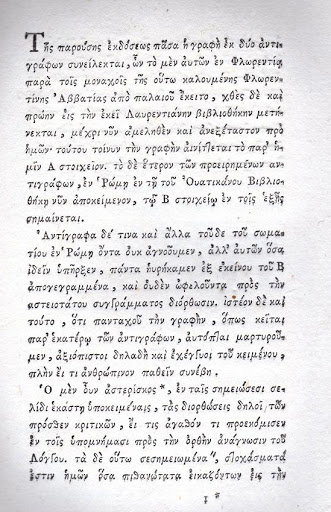 Τῆς παρούσης ἐκδόσεως πᾶσα ἡ γραφὴ ἐκ δύο ἀντι-
γράφων συνείλεκται, ὧν τὸ μὲν αὐτῶν ἐν Φλωρεντίᾳ
παρὰ τοῖς μοναχοῖς τῆς οὕτω καλουμένης Φλωρεν-
τίνης Ἀββατίας ἀπὸ παλαιοῦ ἔκειτο, χθὲς δὲ καὶ
πρώην εἰς τὴν ἐκεῖ Λαυρεντιανὴν βιβλιοθήκην μετή-
νεκται, μέχρι νῦν ἀμεληθὲν καὶ ἀνεξέταστον πρὸ
ἡμῶν· τούτου τοίνυν τὴν γραφὴν αἰνίττεται τὸ παρ' ἡ-
μῖν Α στοιχεῖον. τὸ δὲ ἕτερον τῶν προειρημένων ἀν-
τιγράφων, ἐν Ῥώμῃ ἐν τῇ τοῦ Οὐατικάνου Βιβλιο-
θήκῃ νῦν ἀποκείμενον, τῷ Β στοιχείῳ ἐν τοῖς ἑξῆς
σημαίνεται.
Ἀντίγραφα δέ τινα καὶ ἄλλα τοῦδε τοῦ σωμα-
τίου ἐν Ῥώμῃ ὄντα οὐκ ἀγνοοῦμεν, ἀλλ' αὐτῶν ὅσα
ἰδεῖν ὑπῆρξεν, πάντα ηὑρήκαμεν ἐξ ἐκείνου τοῦ Β
ἀπογεγραμμένα, καὶ οὐδὲν ὠφελοῦντα πρὸς τὴν
ἀστειοτάτου συγγράμματος διόρθωσιν. ἰστέον δὲ καὶ
τοῦτο, ὅτι πανταχοῦ τὴν γραφὴν, ὅπως κεῖται
παρ' ἑκατέρῳ τῶν ἀντιγράφων, αὐτόπται μαρτυροῦ-
μεν, ἀξιόπιστοι δηλαδὴ καὶ ἐχέγγυοι τοῦ κειμένου,
πλὴν εἴ τι ἀνθρώπινον παθεῖν συνέβη.
Ὁ μὲν οὖν ἀστερίσκος *, ἐν ταῖς σημειώσεσι σε-
λίδι ἑκάστῃ ὑποκειμέναις, τὰς διορθώσεις δηλοῖ τῶν
πρόσθεν κριτικῶν, εἴ τις ἀγαθόν τι προεκόμισεν
ἐν τοῖς ὑπομνήμασι πρὸς τὴν ὀρθὴν ἀνάγνωσιν τοῦ
Λόγγου. τὰ δὲ οὕτω σεσημειωμένα", στοχάσματά
ἐστιν ἡμῶν ὅσα πιθανώτατα εἰκαζόντων εἰς τὴν
1 *